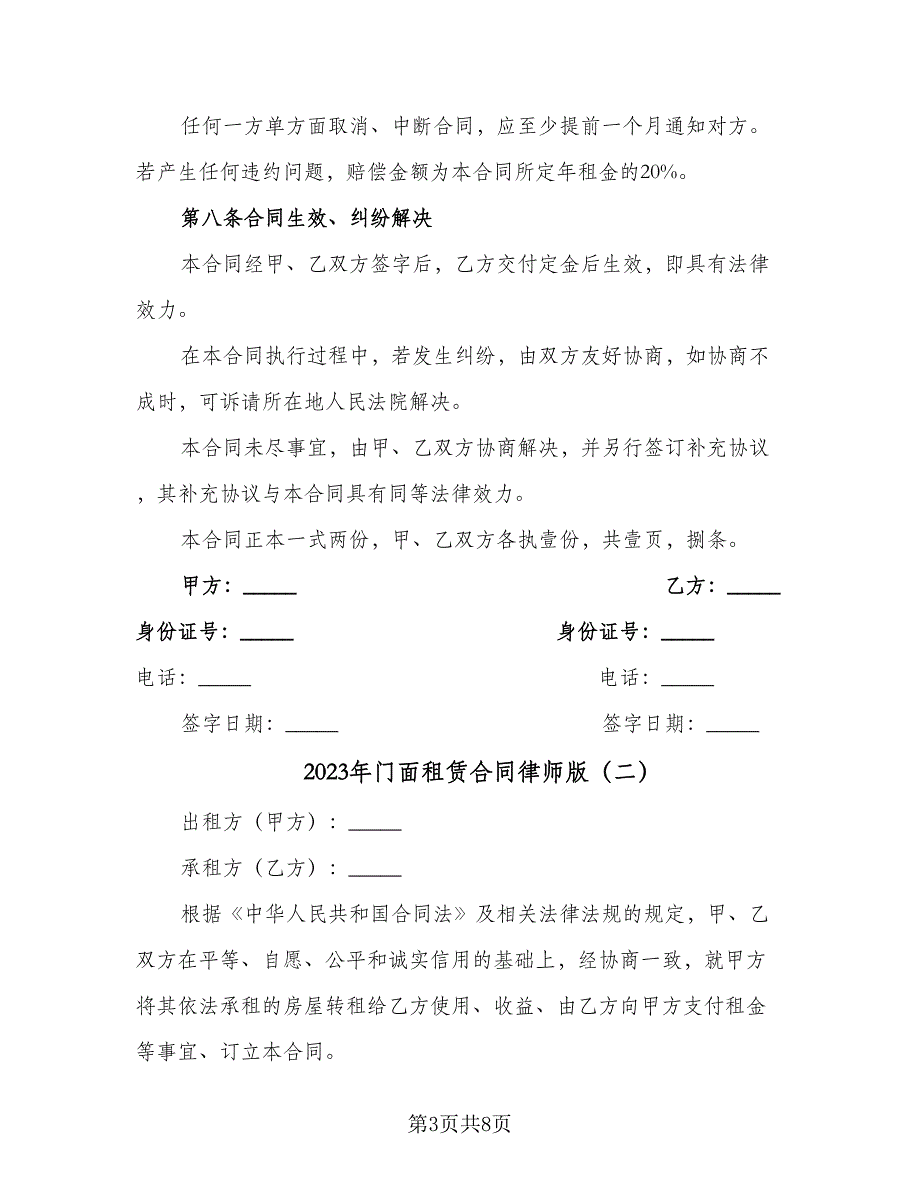 任何一方单方面取消、中断合同，应至少提前一个月通知对方。
若产生任何违约问题，赔偿金额为本合同所定年租金的20%。
第八条合同生效、纠纷解决
本合同经甲、乙双方签字后，乙方交付定金后生效，即具有法律
效力。
在本合同执行过程中，若发生纠纷，由双方友好协商，如协商不
成时，可诉请所在地人民法院解决。
本合同未尽事宜，由甲、乙双方协商解决，并另行签订补充协议
，其补充协议与本合同具有同等法律效力。
本合同正本一式两份，甲、乙双方各执壹份，共壹页，捌条。
甲方：_____ 乙方：_____
身份证号：_____ 身份证号：_____
电话：_____ 电话：_____
签字日期：_____ 签字日期：_____
2023年门面租赁合同律师版（二）
出租方（甲方）：_____
承租方（乙方）：_____
根据《中华人民共和国合同法》及相关法律法规的规定，甲、乙
双方在平等、自愿、公平和诚实信用的基础上，经协商一致，就甲方
将其依法承租的房屋转租给乙方使用、收益、由乙方向甲方支付租金
等事宜、订立本合同。
第3页共8页